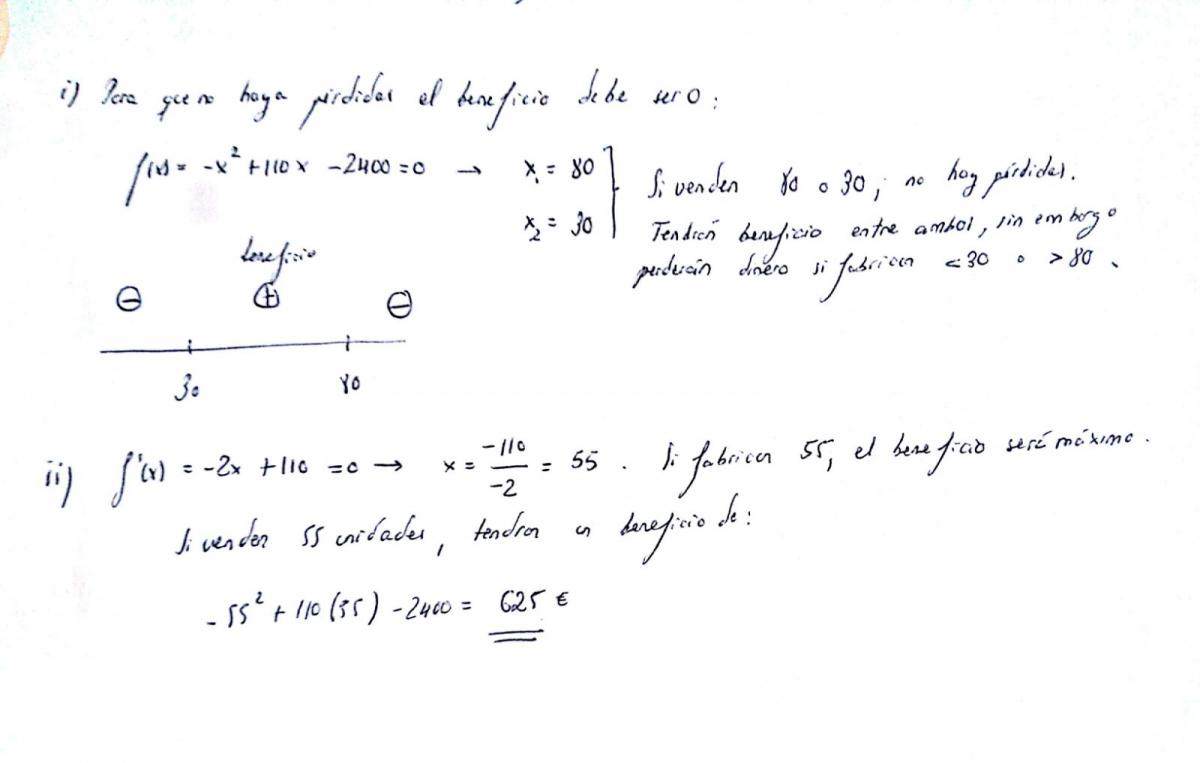 i) Para que no haya pérdidas el beneficio debe ser 0:
f(x) = -x² + 110x - 2400 = 0 → x₁ = 80
x₂ = 30
Si venden 80 o 30, no hay pérdidas.
Tendrán beneficio entre ambos, sin embargo
perderán dinero si fabrican < 30 o > 80.
beneficio
⊖ ⊕ ⊖
30 80
ii) f'(x) = -2x + 110 = 0 → x = -110/-2 = 55. Si fabrican 55, el beneficio será máximo.
Si venden 55 unidades, tendrán un beneficio de:
-55² + 110(55) - 2400 = 625 €